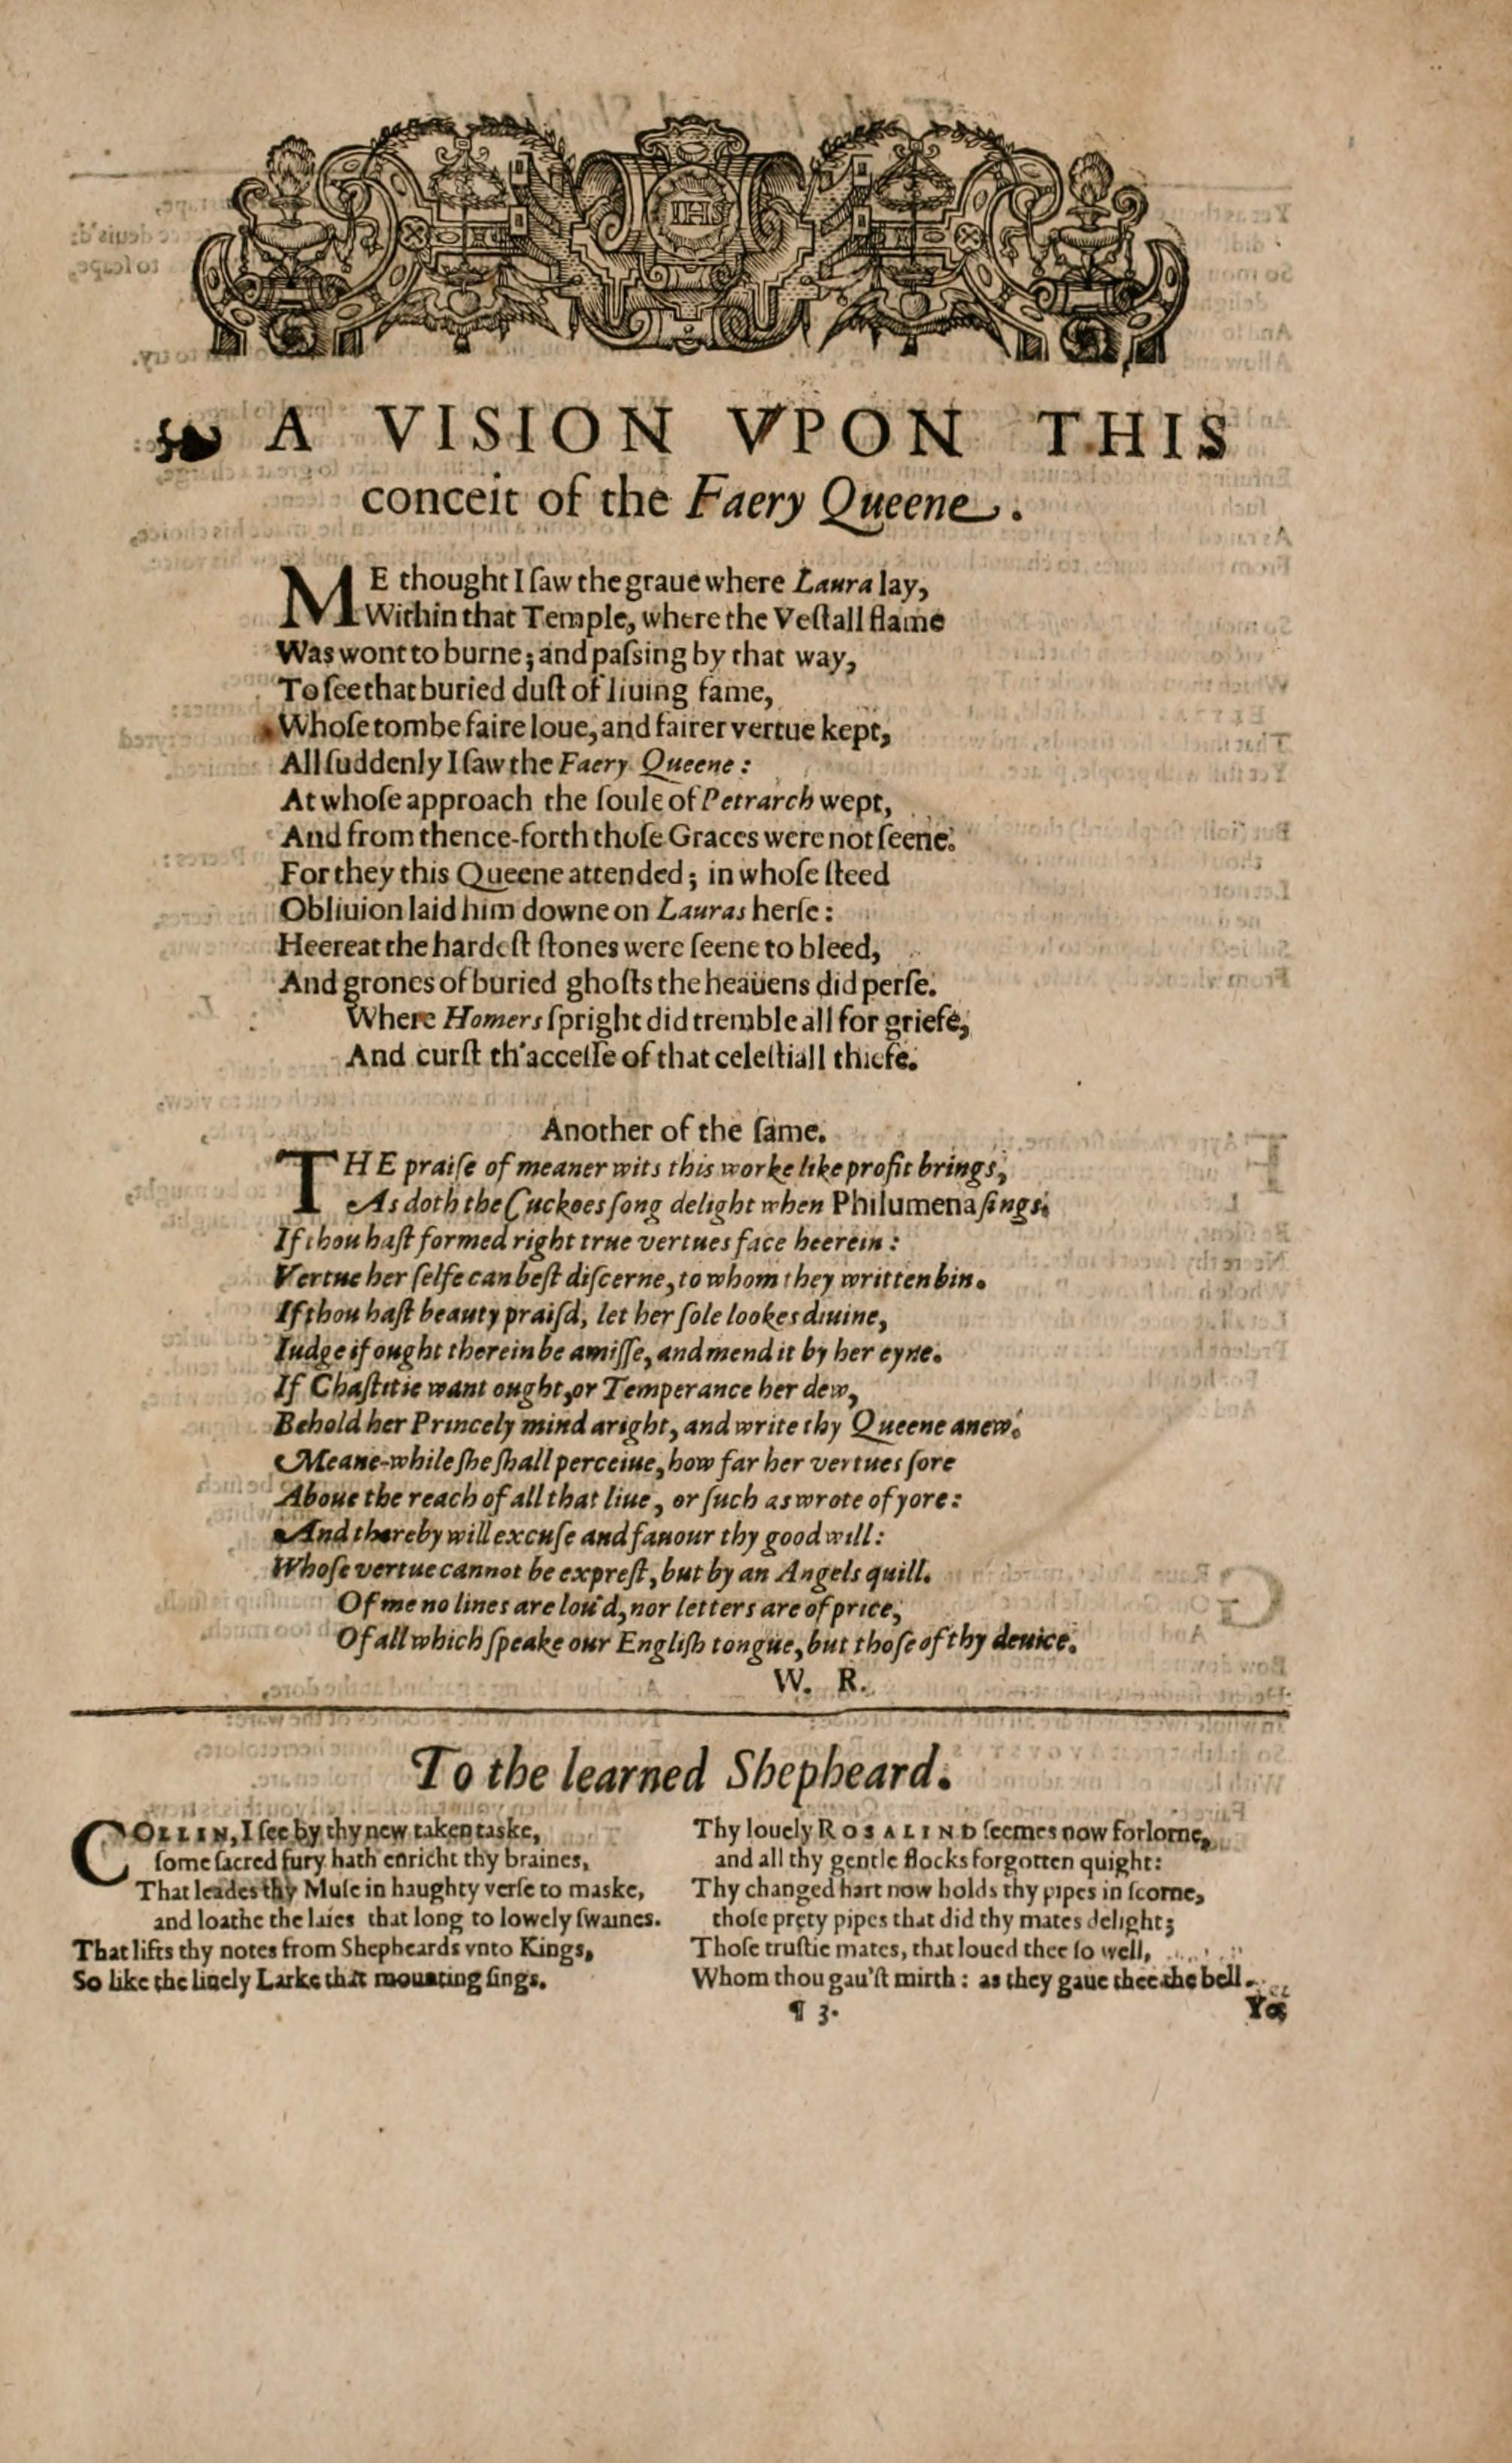 IHS
A VISION VPON THIS
conceit of the Faery Queene.
ME thought I ſaw the graue where Laura lay,
Within that Temple, where the Veſtall flame
Was wont to burne; and paſsing by that way,
To ſee that buried duſt of liuing fame,
Whoſe tombe faire loue, and fairer vertue kept,
All ſuddenly I ſaw the Faery Queene:
At whoſe approach the ſoule of Petrarch wept,
And from thence-forth thoſe Graces were not ſeene.
For they this Queene attended; in whoſe ſteed
Obliuion laid him downe on Lauras herſe:
Heereat the hardeſt ſtones were ſeene to bleed,
And grones of buried ghoſts the heauens did perſe.
Where Homers ſpright did tremble all for griefe,
And curſt th'acceſſe of that celeſtiall thiefe.
Another of the ſame.
THE praiſe of meaner wits this worke like profit brings,
As doth the Cuckoes ſong delight when Philumena ſings.
If thou haſt formed right true vertues face heerein:
Vertue her ſelfe can beſt diſcerne, to whom they written bin.
If thou haſt beauty praiſd, let her ſole lookes diuine,
Iudge if ought therein be amiſſe, and mend it by her eyne.
If Chaſtitie want ought, or Temperance her dew,
Behold her Princely mind aright, and write thy Queene anew.
Meane-while ſhe ſhall perceiue, how far her vertues ſore
Aboue the reach of all that liue, or ſuch as wrote of yore:
And thereby will excuſe and fauour thy good will:
Whoſe vertue cannot be expreſt, but by an Angels quill.
Of me no lines are lou'd, nor letters are of price,
Of all which ſpeake our Engliſh tongue, but thoſe of thy deuice.
W. R.
To the learned Shepheard.
COLLIN, I ſee by thy new taken taske,
ſome ſacred fury hath enricht thy braines,
That leades thy Muſe in haughty verſe to maske,
and loathe the laies that long to lowely ſwaines.
That lifts thy notes from Shepheards vnto Kings,
So like the liuely Larke that mounting ſings.
Thy louely ROSALIND ſeemes now forlorne,
and all thy gentle flocks forgotten quight:
Thy changed hart now holds thy pipes in ſcorne,
thoſe prety pipes that did thy mates delight;
Thoſe truſtie mates, that loued thee ſo well,
Whom thou gau'ſt mirth: as they gaue thee the bell.
¶ 3.
Yet